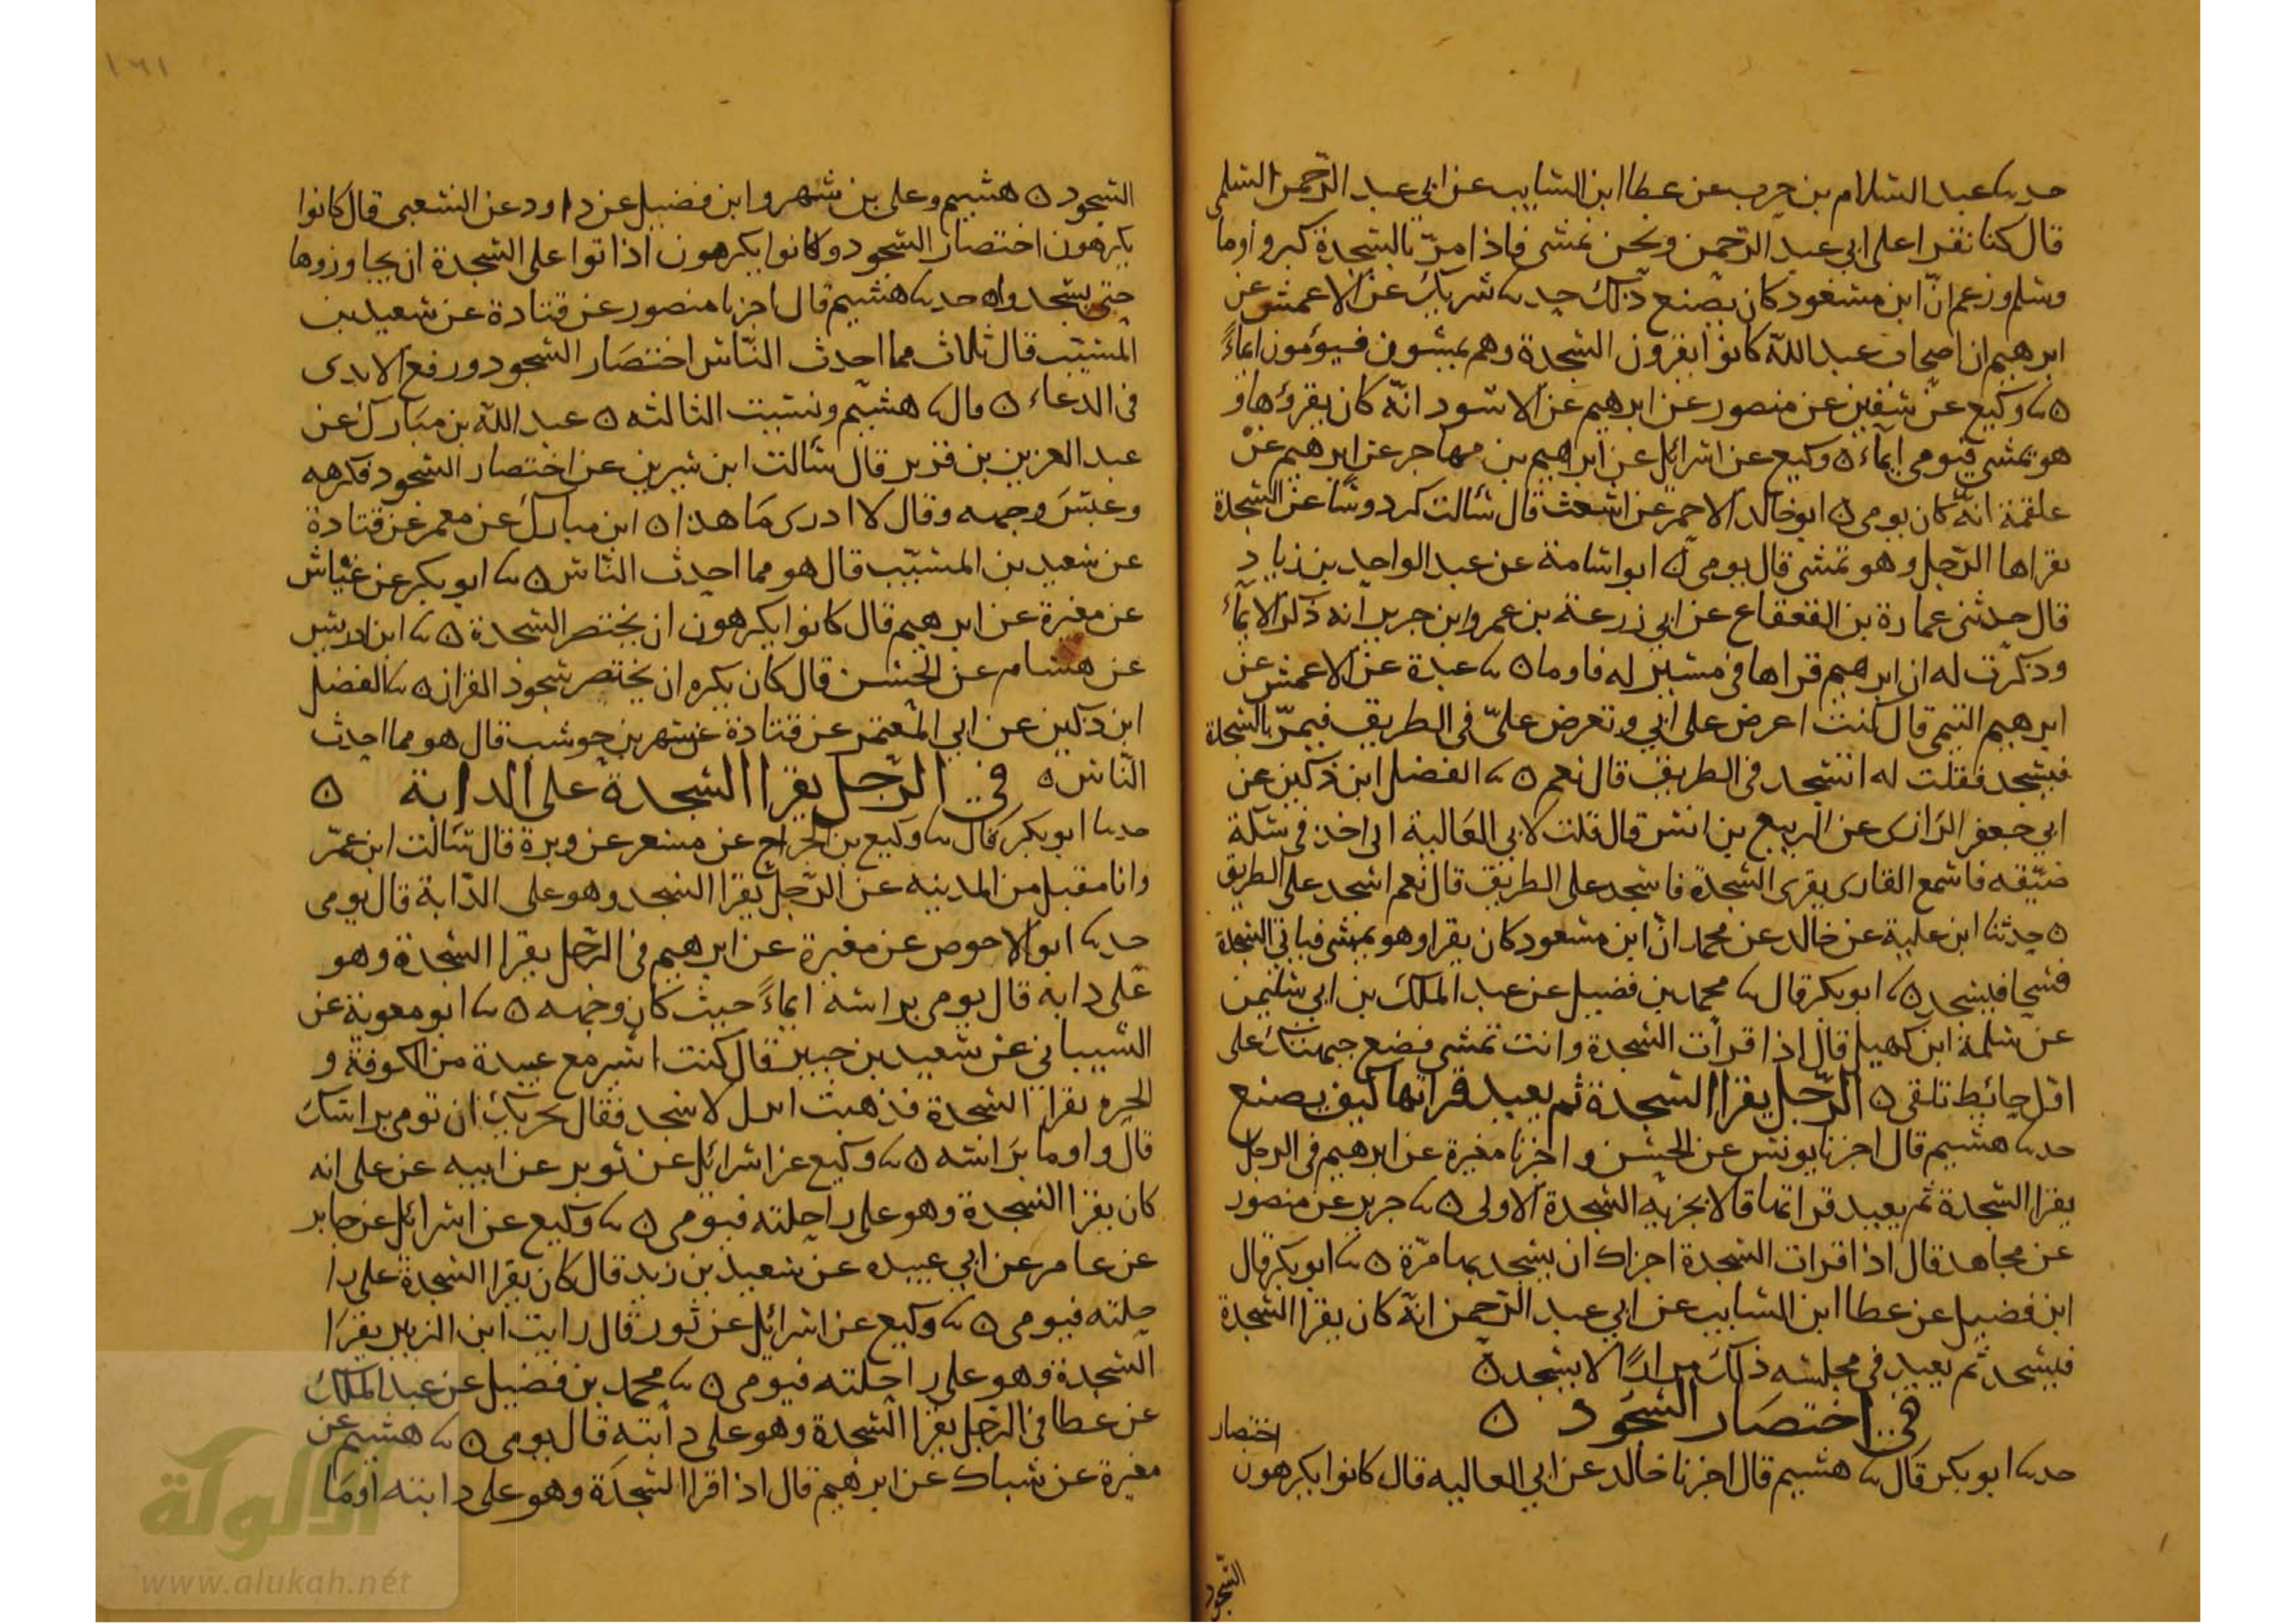 حدثنا عبد السلام بن حرب عن عطا ابن السايب عن ابي عبد الرحمن السلمي
قال كنا نقرا على ابي عبد الرحمن ونحن نمشي فاذا مرّ بالسجدة كبر وأوما
وسلم وزعم انّ ابن مسعود كان يصنع ذلك حدثنا شريك عن الاعمش عن
ابرهيم ان اصحاب عبد الله كانوا يقرون السجدة وهم يمشون فيؤمون ايماءً
ه نا وكيع عن سفين عن منصور عن ابرهيم عن الاسود انّه كان يقرؤها و
هو يمشي فيومي ايماءً ه وكيع عن اسرائل عن ابراهيم بن مهاجر عن ابرهيم عن
علقمة انّه كان يومي ه ابو خالد الاحمر عن اشعث قال سألت كردوسًا عن السجدة
يقراها الرّجل وهو يمشي قال يومي ه ابو اسامة عن عبد الواحد بن زياد
قال حدثني عمارة بن القعقاع عن ابي زرعة بن عمرو ابن جرير انه ذكر الايماءَ
وذكرت له ان ابرهيم قراها في مسير له فاوما ه نا عبدة عن الاعمش عن
ابرهيم التيمي قال كنت اعرض على ابي وتعرض عليّ في الطريق فيمرّ بالسجدة
فيسجد فقلت له اتسجد في الطريق قال نعم ه نا الفضل ابن دكين عن
ابي جعفر الرازي عن الربيع بن انس قال قلت لابي العالية اني اخذ في سكة
ضيّقه فاسمع القارى يقرى السجدة فاسجد على الطريق قال نعم اسجد على الطريق
ه حدثنا ابن علية عن خالد عن محمد انّ ابن مسعود كان يقرا وهو يمشي فياتي السجدة
فتنحا فيسجد ه نا ابو بكر قال نا محمد بن فضيل عن عبد الملك بن ابي سليمن
عن سلمة ابن كهيل قال اذا قرات السجدة وانت تمشي فضع جبهتك على
اول حائط تلقى ه الرّجل يقرا السجدة ثم يعيد قراتها كيف يصنع
حدثنا هشيم قال اخبرنا يونس عن الحسن واخبرنا مغيرة عن ابرهيم في الرجل
يقرا السجدة ثم يعيد قراتها قالا يجزيه السجدة الاولى ه نا جرير عن منصور
عن مجاهد قال اذا قرات السجدة اجزاك ان تسجد بها مرّة ه نا ابو بكر قال
ابن فضيل عن عطا ابن السايب عن ابي عبد الرّحمن انّه كان يقرا السجدة
فيسجد ثم يعيد في مجلسه ذلك مرارًا لا يسجد ه
في اختصار السجود ه
حدثنا ابو بكر قال نا هشيم قال اخبرنا خالد عن ابي العاليه قال كانوا يكرهون
اختصار
السجود
١٦١
السجود ه هشيم وعلي بن مسهر وابن فضيل عن داود عن الشعبي قال كانوا
يكرهون اختصار السجود وكانوا يكرهون اذا اتوا على السجدة ان يجاوزوها
حتى يسجدوا ه حدثنا هشيم قال اخبرنا منصور عن قتادة عن سعيد بن
المسيّب قال ثلاث مما احدث النّاس اختصَار السجود ورفع الايدى
في الدعاء ه قال نا هشيم ونسيت الثالثه ه عبد الله بن مبارك عن
عبد العزيز بن قرير قال سألت ابن سيرين عن اختصار السجود فكرهه
وعبّسَ وجهه وقال لا ادرى مَا هذا ه ابن مبارك عن معمر عن قتادة
عن سعيد بن المسيّب قال هو مما احدث النّاس ه نا ابو بكر عن عيّاش
عن مغيرة عن ابرهيم قال كانوا يكرهون ان يختصر السجدة ه نا ابن ادريس
عن هشام عن الحسن قال كان يكره ان يختصر سجود القران ه نا الفضل
ابن دكين عن ابي المعتمر عن قتادة عن شهر بن حوشب قال هو مما احدث
النّاس ه في الرّجل يقرا السجدة على الدابة ه
حدثنا ابو بكر قال نا وكيع بن الجراح عن مسعر عن وبرة قال سَالت ابن عمَر
وانا مقبل من المدينه عن الرّجل يقرا السجد وهو على الدّابة قال يومى
حدثنا ابو الاحوص عن مغيرة عن ابرهيم في الرّجل يقرا السجدة وهو
على دابه قال يومي براسه ايماءً حيث كان وجهه ه نا ابو معوية عن
الشيباني عن سعيد بن جبير قال كنت اسير مع عبيدة من الكوفة و
الحيره يقرا السجدة فذهبت انزل لاسجد فقال يجزيك ان تومي براسك
قال واوما براسه ه نا وكيع عن اسرائل عن ثوير عن ابيه عن على انه
كان يقرا السجدة وهو على راحلته فيومى ه نا وكيع عن اسرائل عن جابر
عن عامر عن ابي عبيده عن سعيد بن زيد قال كان يقرا السجدة على را
حلته فيومى ه نا وكيع عن اسرائل عن ثور قال رايت ابن الزبير يقرَا
السجدة وهو على راحلته فيومى ه نا محمد بن فضيل عن عبد الملك
عن عطا في الرّجل يقرا السجدة وهو على دابته قال يومى ه نا هشيم عن
مغيرة عن شباك عن ابرهيم قال اذا قرا السجدَة وهو على دابته أومَا
الألوكة
www.alukah.net